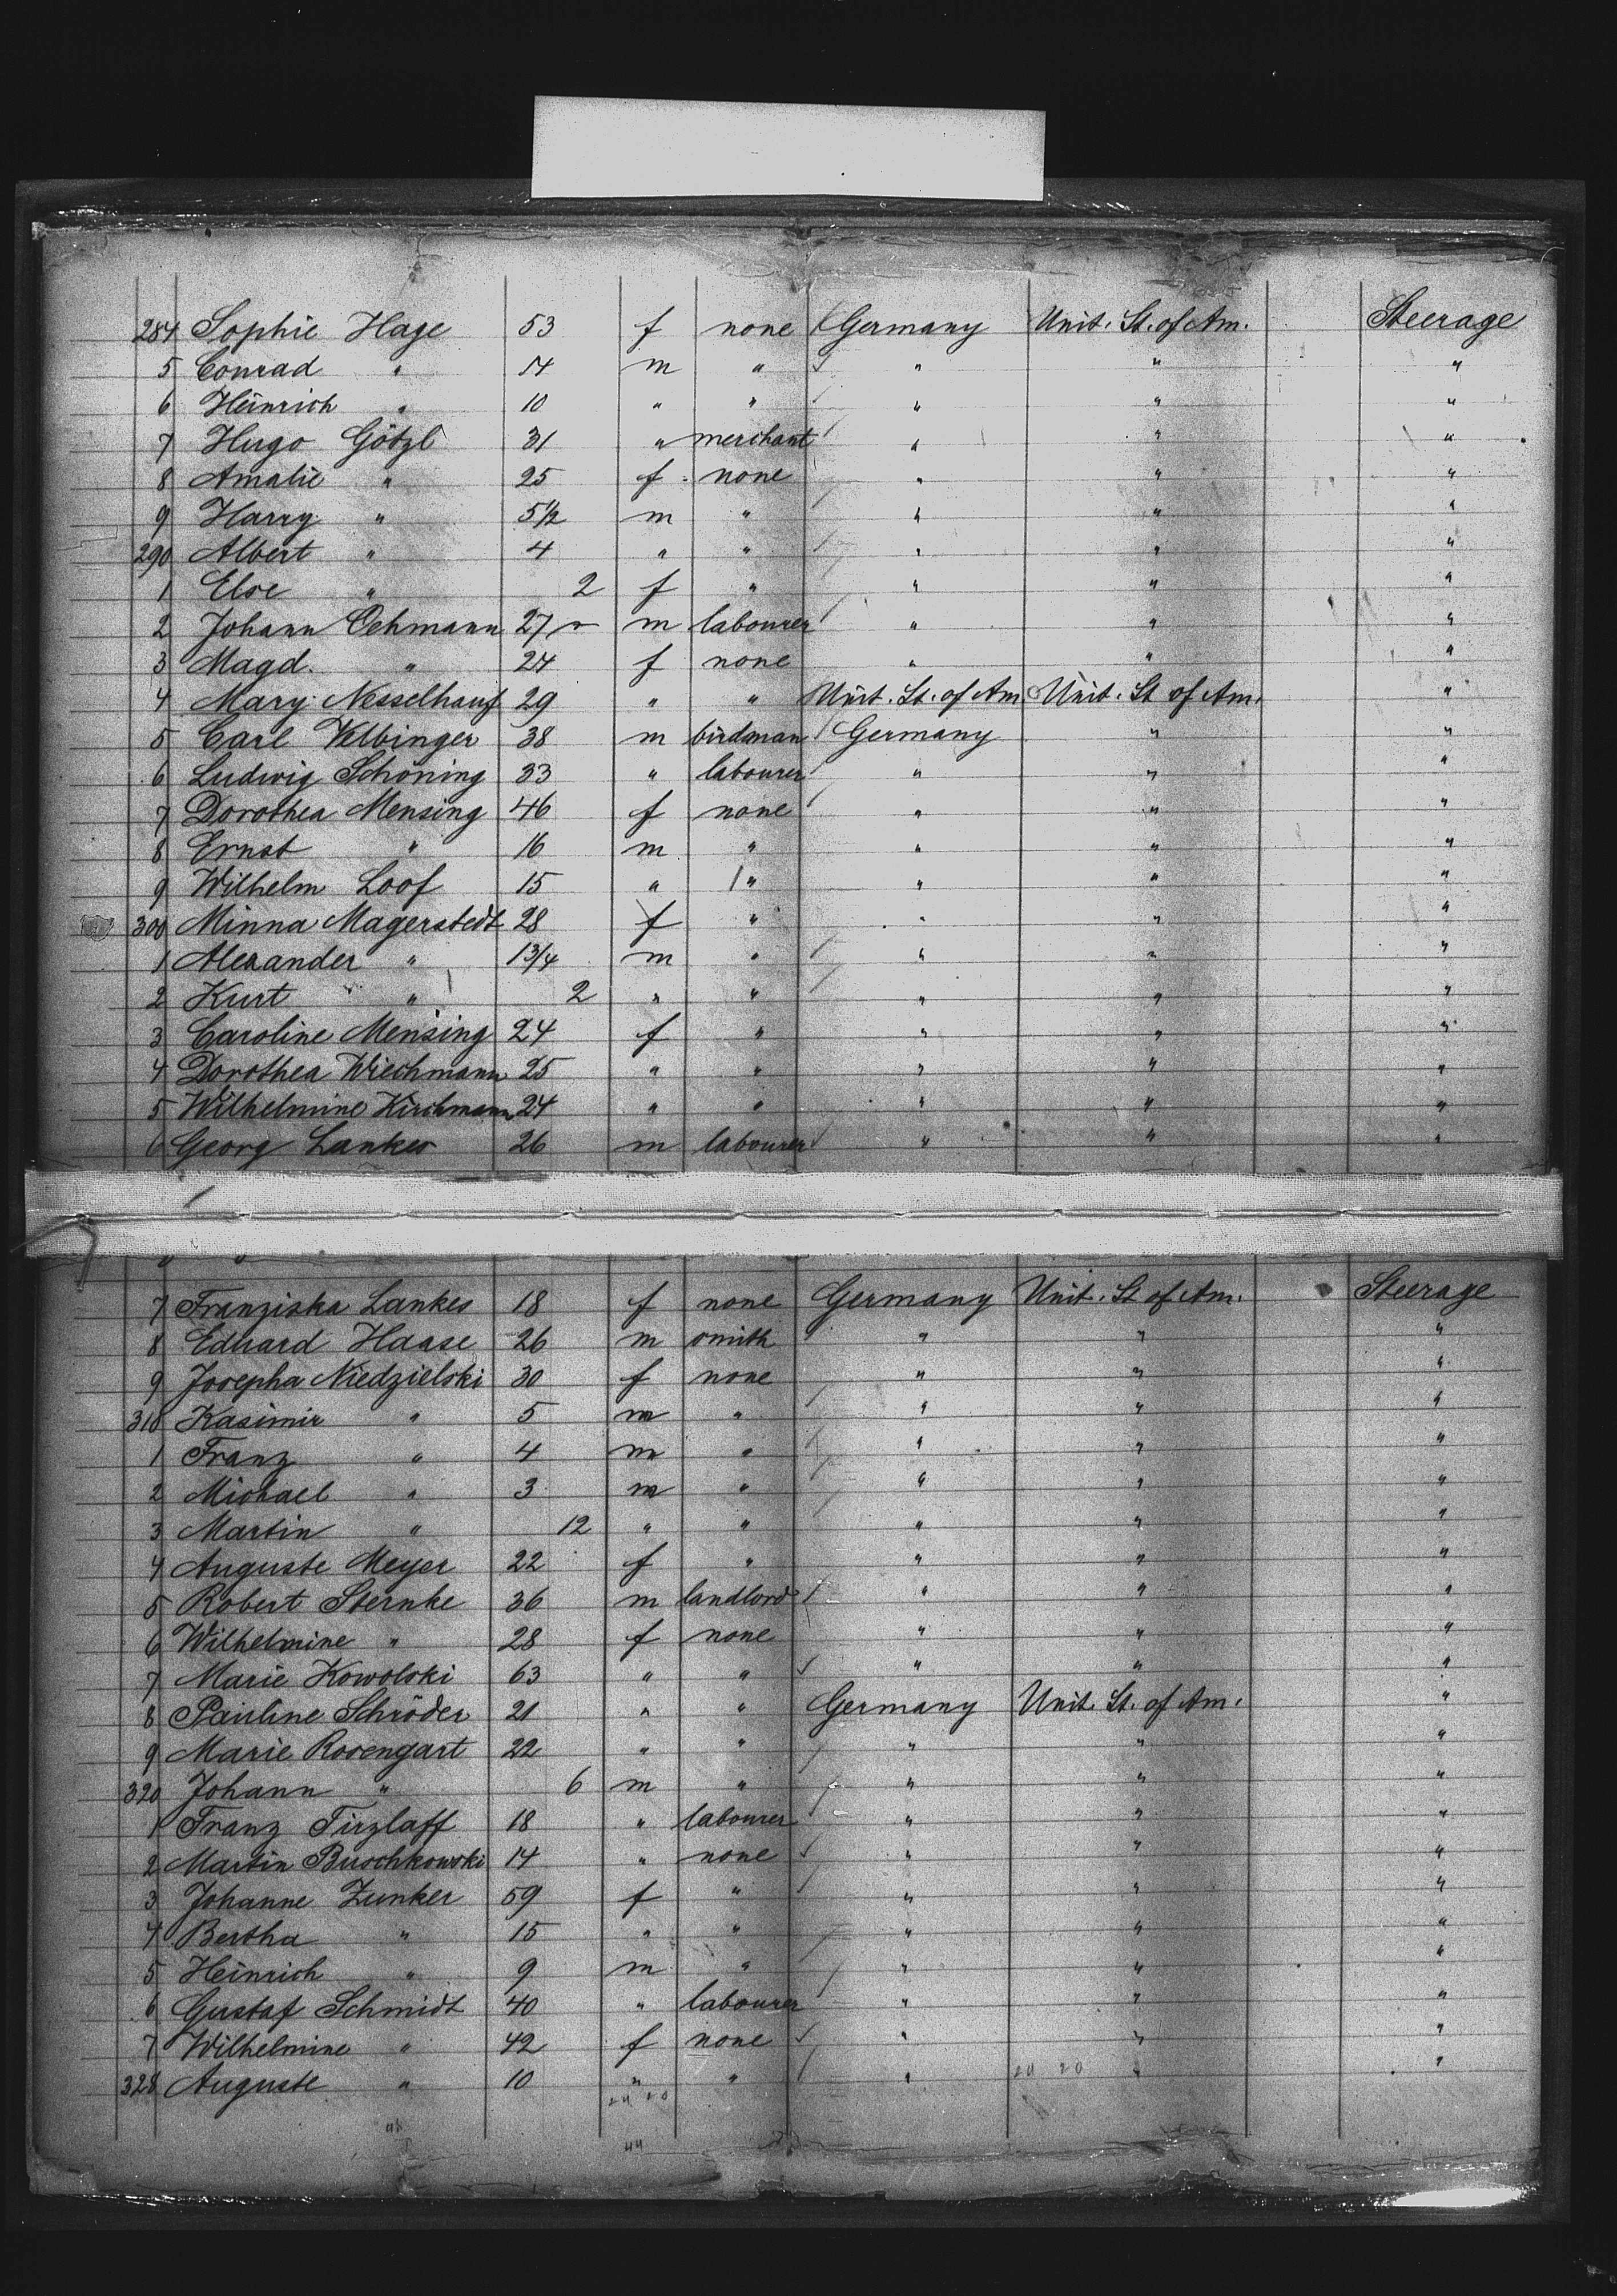 284 Sophie Hage 53 f none Germany Unit. St. of Am. Steerage
5 Conrad " 14 m " " " "
6 Heinrich " 10 " " " " "
7 Hugo Götzl 31 " merchant " " "
8 Amalie " 25 f none " " "
9 Harry " 5½ m " " " "
290 Albert " 4 " " " " "
1 Else " 2 f " " " "
2 Johann Oehmann 27 m labourer " " "
3 Magd. " 24 f none " " "
4 Mary Nesselhauf 29 " " Unit. St. of Am. Unit. St of Am. "
5 Carl Velbinger 38 m birdman Germany " "
6 Ludwig Schöning 33 " labourer " " "
7 Dorothea Mensing 46 f none " " "
8 Ernst " 16 m " " " "
9 Wilhelm Loof 15 " " " " "
300 Minna Magerstedt 28 f " " " "
1 Alexander " 1 3/4 m " " " "
2 Kurt " 2 " " " " "
3 Caroline Mensing 24 f " " " "
4 Dorothea Wiechmann 25 " " " " "
5 Wilhelmine Kirchmann 24 " " " " "
6 Georg Lankes 26 m labourer " " "
7 Franziska Lankes 18 f none Germany Unit. St of Am. Steerage
8 Eduard Haase 26 m smith " " "
9 Josepha Niedzielski 30 f none " " "
310 Kasimir " 5 m " " " "
1 Franz " 4 m " " " "
2 Michael " 3 m " " " "
3 Martin " 12 " " " " "
4 Auguste Meyer 22 f " " " "
5 Robert Sternke 36 m landlord " " "
6 Wilhelmine " 28 f none " " "
7 Marie Kowolski 63 " " " " "
8 Pauline Schröder 21 " " Germany Unit. St. of Am. "
9 Marie Rosengart 22 " " " " "
320 Johann " 6 m " " " "
1 Franz Tirzlaff 18 " labourer " " "
2 Martin Buschkowski 14 " none " " "
3 Johanne Zunker 59 f " " " "
4 Bertha " 15 " " " " "
5 Heinrich " 9 m " " " "
6 Gustaf Schmidt 40 " labourer " " "
7 Wilhelmine " 42 f none " " "
328 Auguste " 10 " " " " "
24 20
24 20
44